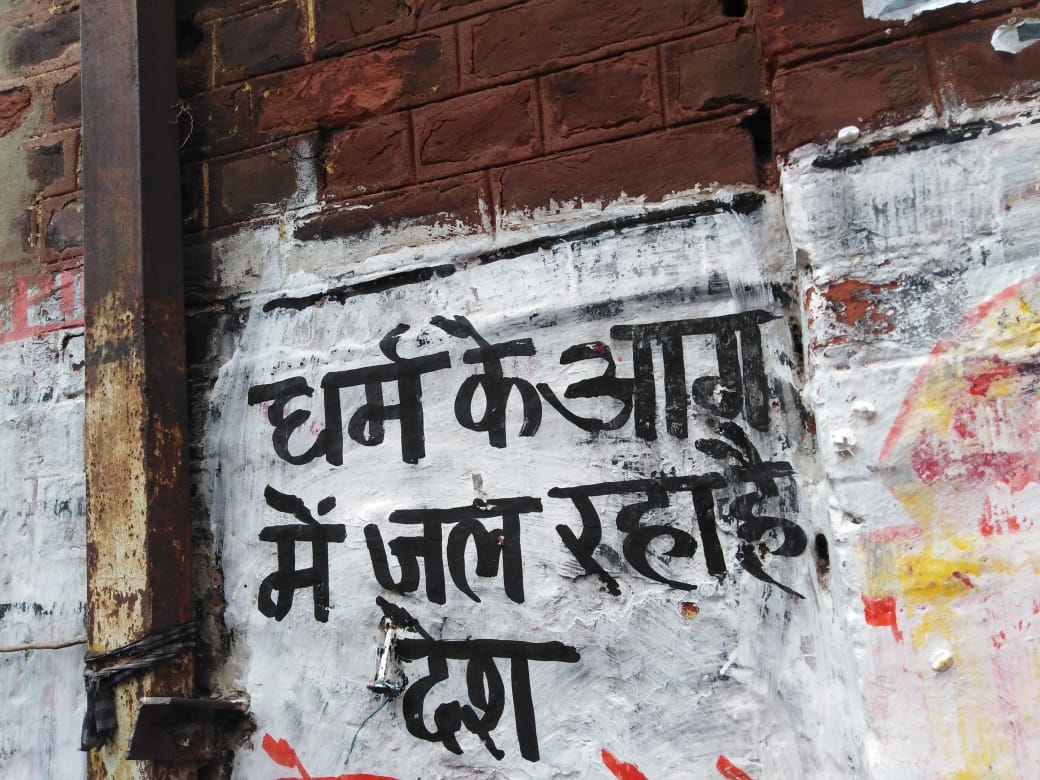 धर्म के आग
में जल रहा है
देश